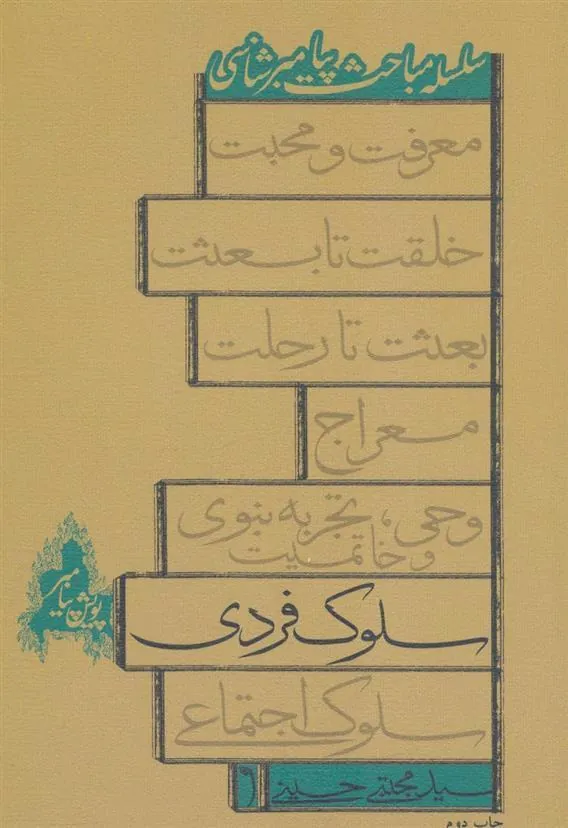 سلسله مباحث پیامبرشناسی
معرفت و محبت
خلقت تا بعثت
بعثت تا رحلت
معراج
وحی، تجربه نبوی
و خاتمیت
پویش پیامبر
سلوک فردی
سلوک اجتماعی
سید مجتبی حسینی
چاپ دوم